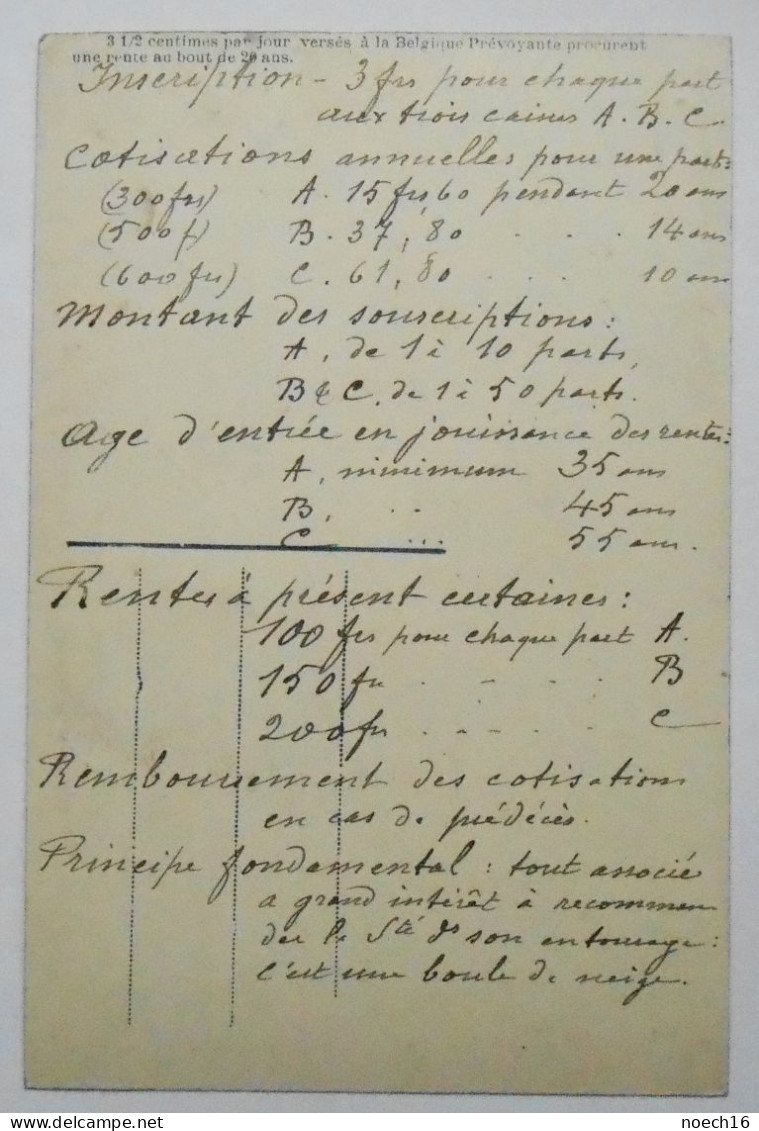 3 1/2 centimes par jour versés à la Belgique Prévoyante procurent
une rente au bout de 20 ans.
Inscription - 3 frs pour chaque part
aux trois caisses A. B. C.
Cotisations annuelles pour une part:
(300 frs) A. 15 frs 60 pendant 20 ans
(500 f) B. 37,80 . . . 14 ans
(600 frs) C. 61,80 . . . 10 ans
Montant des souscriptions :
A, de 1 à 10 parts,
B & C, de 1 à 50 parts.
Age d'entrée en jouissance des rentes:
A, minimum 35 ans
B, .. 45 ans
C ... 55 ans.
Rentes à présent certaines :
100 frs pour chaque part A.
150 fr . - . . B
200 frs . . . . . C
Remboursement des cotisations
en cas de prédécès.
Principe fondamental : tout associé
a grand intérêt à recomman
der la Sté ds son entourage :
c'est une boule de neige.
noech16